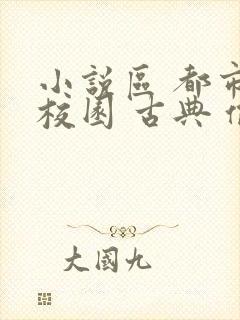 小說區 都市
校園 古典
大國九